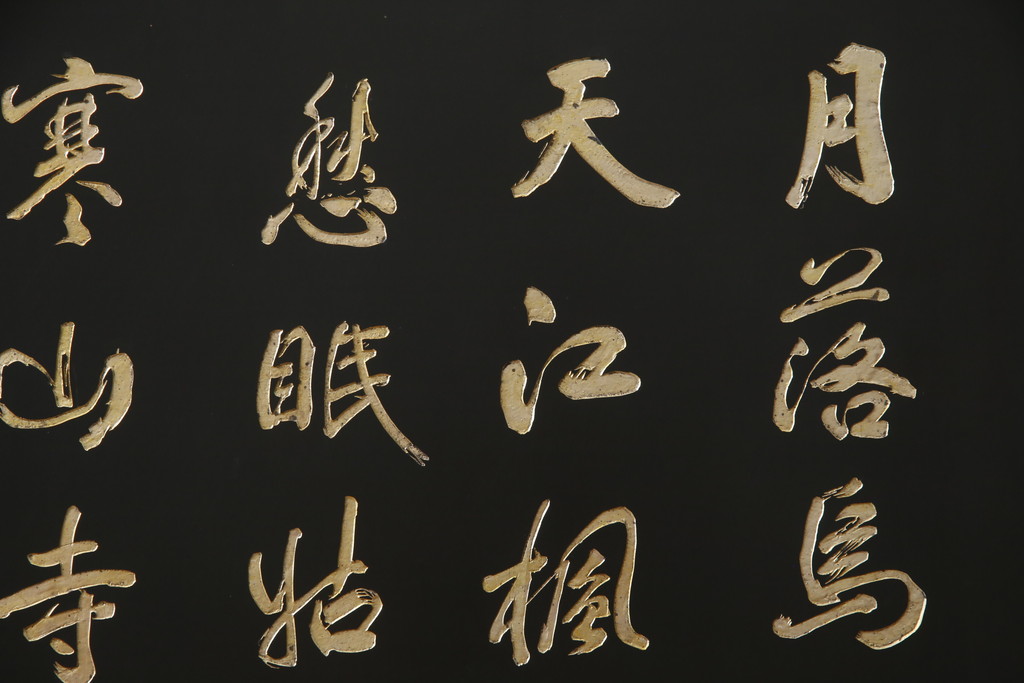 月落烏
天江楓
愁眠姑
寒山寺